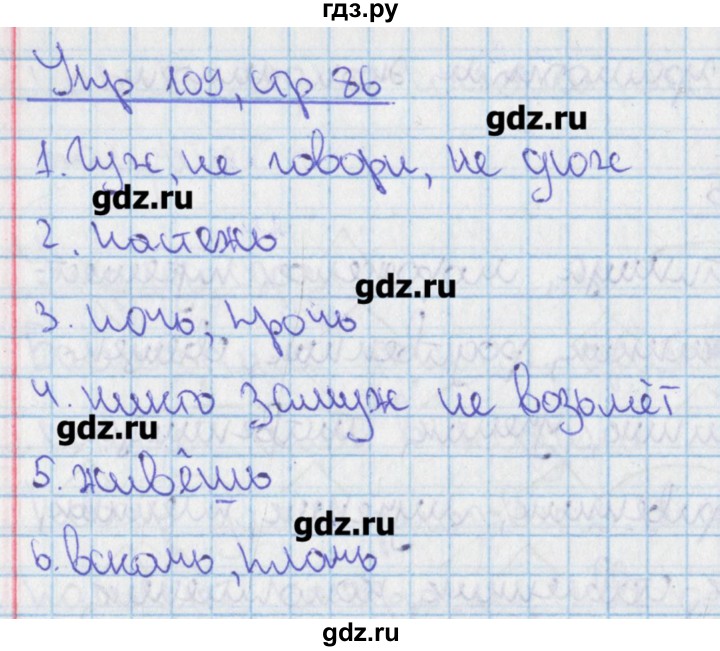 гдз.ру
Упр 109, стр 86
gdz.ru
1. Гуж, не говори, не дюж
gdz.ru
2. настежь
gdz.ru
3. ночь; прочь
4. никто замуж не возьмёт
gdz.ru
5. живёшь
gdz.ru
6. вскачь, плачь
gdz.ru